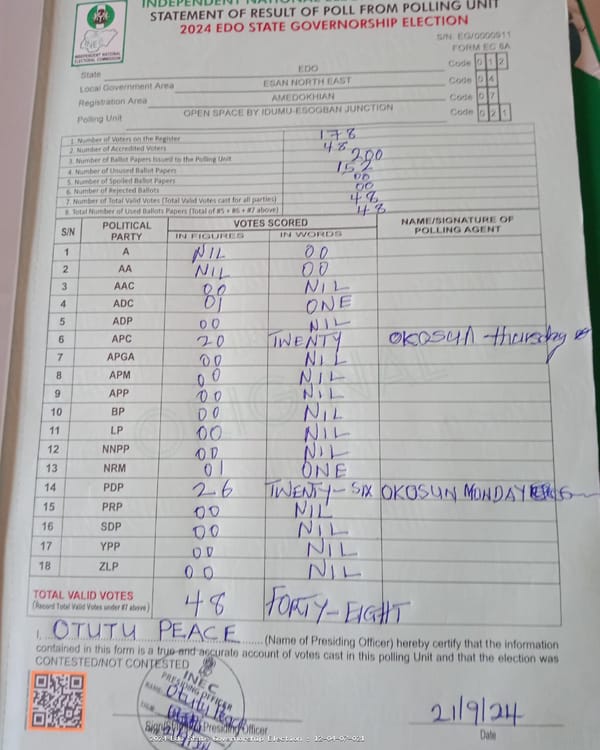 INDEPENDENT NATIONAL
STATEMENT OF RESULT OF POLL FROM POLLING UNIT
2024 EDO STATE GOVERNORSHIP ELECTION
INEC
INDEPENDENT NATIONAL
ELECTORAL COMMISSION
S/N: EG/0000911
FORM EC 8A
State EDO Code 0 1 2
Local Government Area ESAN NORTH EAST Code 0 4
Registration Area AMEDOKHIAN Code 0 7
Polling Unit OPEN SPACE BY IDUMU-ESOGBAN JUNCTION Code 0 2 1
1. Number of Voters on the Register 178
2. Number of Accredited Voters 48
3. Number of Ballot Papers Issued to the Polling Unit 200
4. Number of Unused Ballot Papers 152
5. Number of Spoiled Ballot Papers 00
6. Number of Rejected Ballots 00
7. Number of Total Valid Votes (Total Valid Votes cast for all parties) 48
8. Total Number of Used Ballots Papers (Total of #5 + #6 + #7 above) 48
S/N POLITICAL PARTY VOTES SCORED NAME/SIGNATURE OF POLLING AGENT
IN FIGURES IN WORDS
1 A NIL 00
2 AA NIL 00
3 AAC 00 NIL
4 ADC 01 ONE
5 ADP 00 NIL
6 APC 20 TWENTY OKOSUN thursday
7 APGA 00 NIL
8 APM 00 NIL
9 APP 00 NIL
10 BP 00 NIL
11 LP 00 NIL
12 NNPP 00 NIL
13 NRM 01 ONE
14 PDP 26 TWENTY-SIX OKOSUN MONDAY
15 PRP 00 NIL
16 SDP 00 NIL
17 YPP 00 NIL
18 ZLP 00 NIL
TOTAL VALID VOTES 48 FORTY-EIGHT
(Record Total Valid Votes under #7 above)
I, OTUTU PEACE (Name of Presiding Officer) hereby certify that the information
contained in this form is a true and accurate account of votes cast in this polling Unit and that the election was
CONTESTED/NOT CONTESTED
INEC
PRESIDING OFFICER
Otutu Peace
21/9/24
Signature of Presiding Officer
Date
2024 Edo State Governorship Election - 12-04-07-021